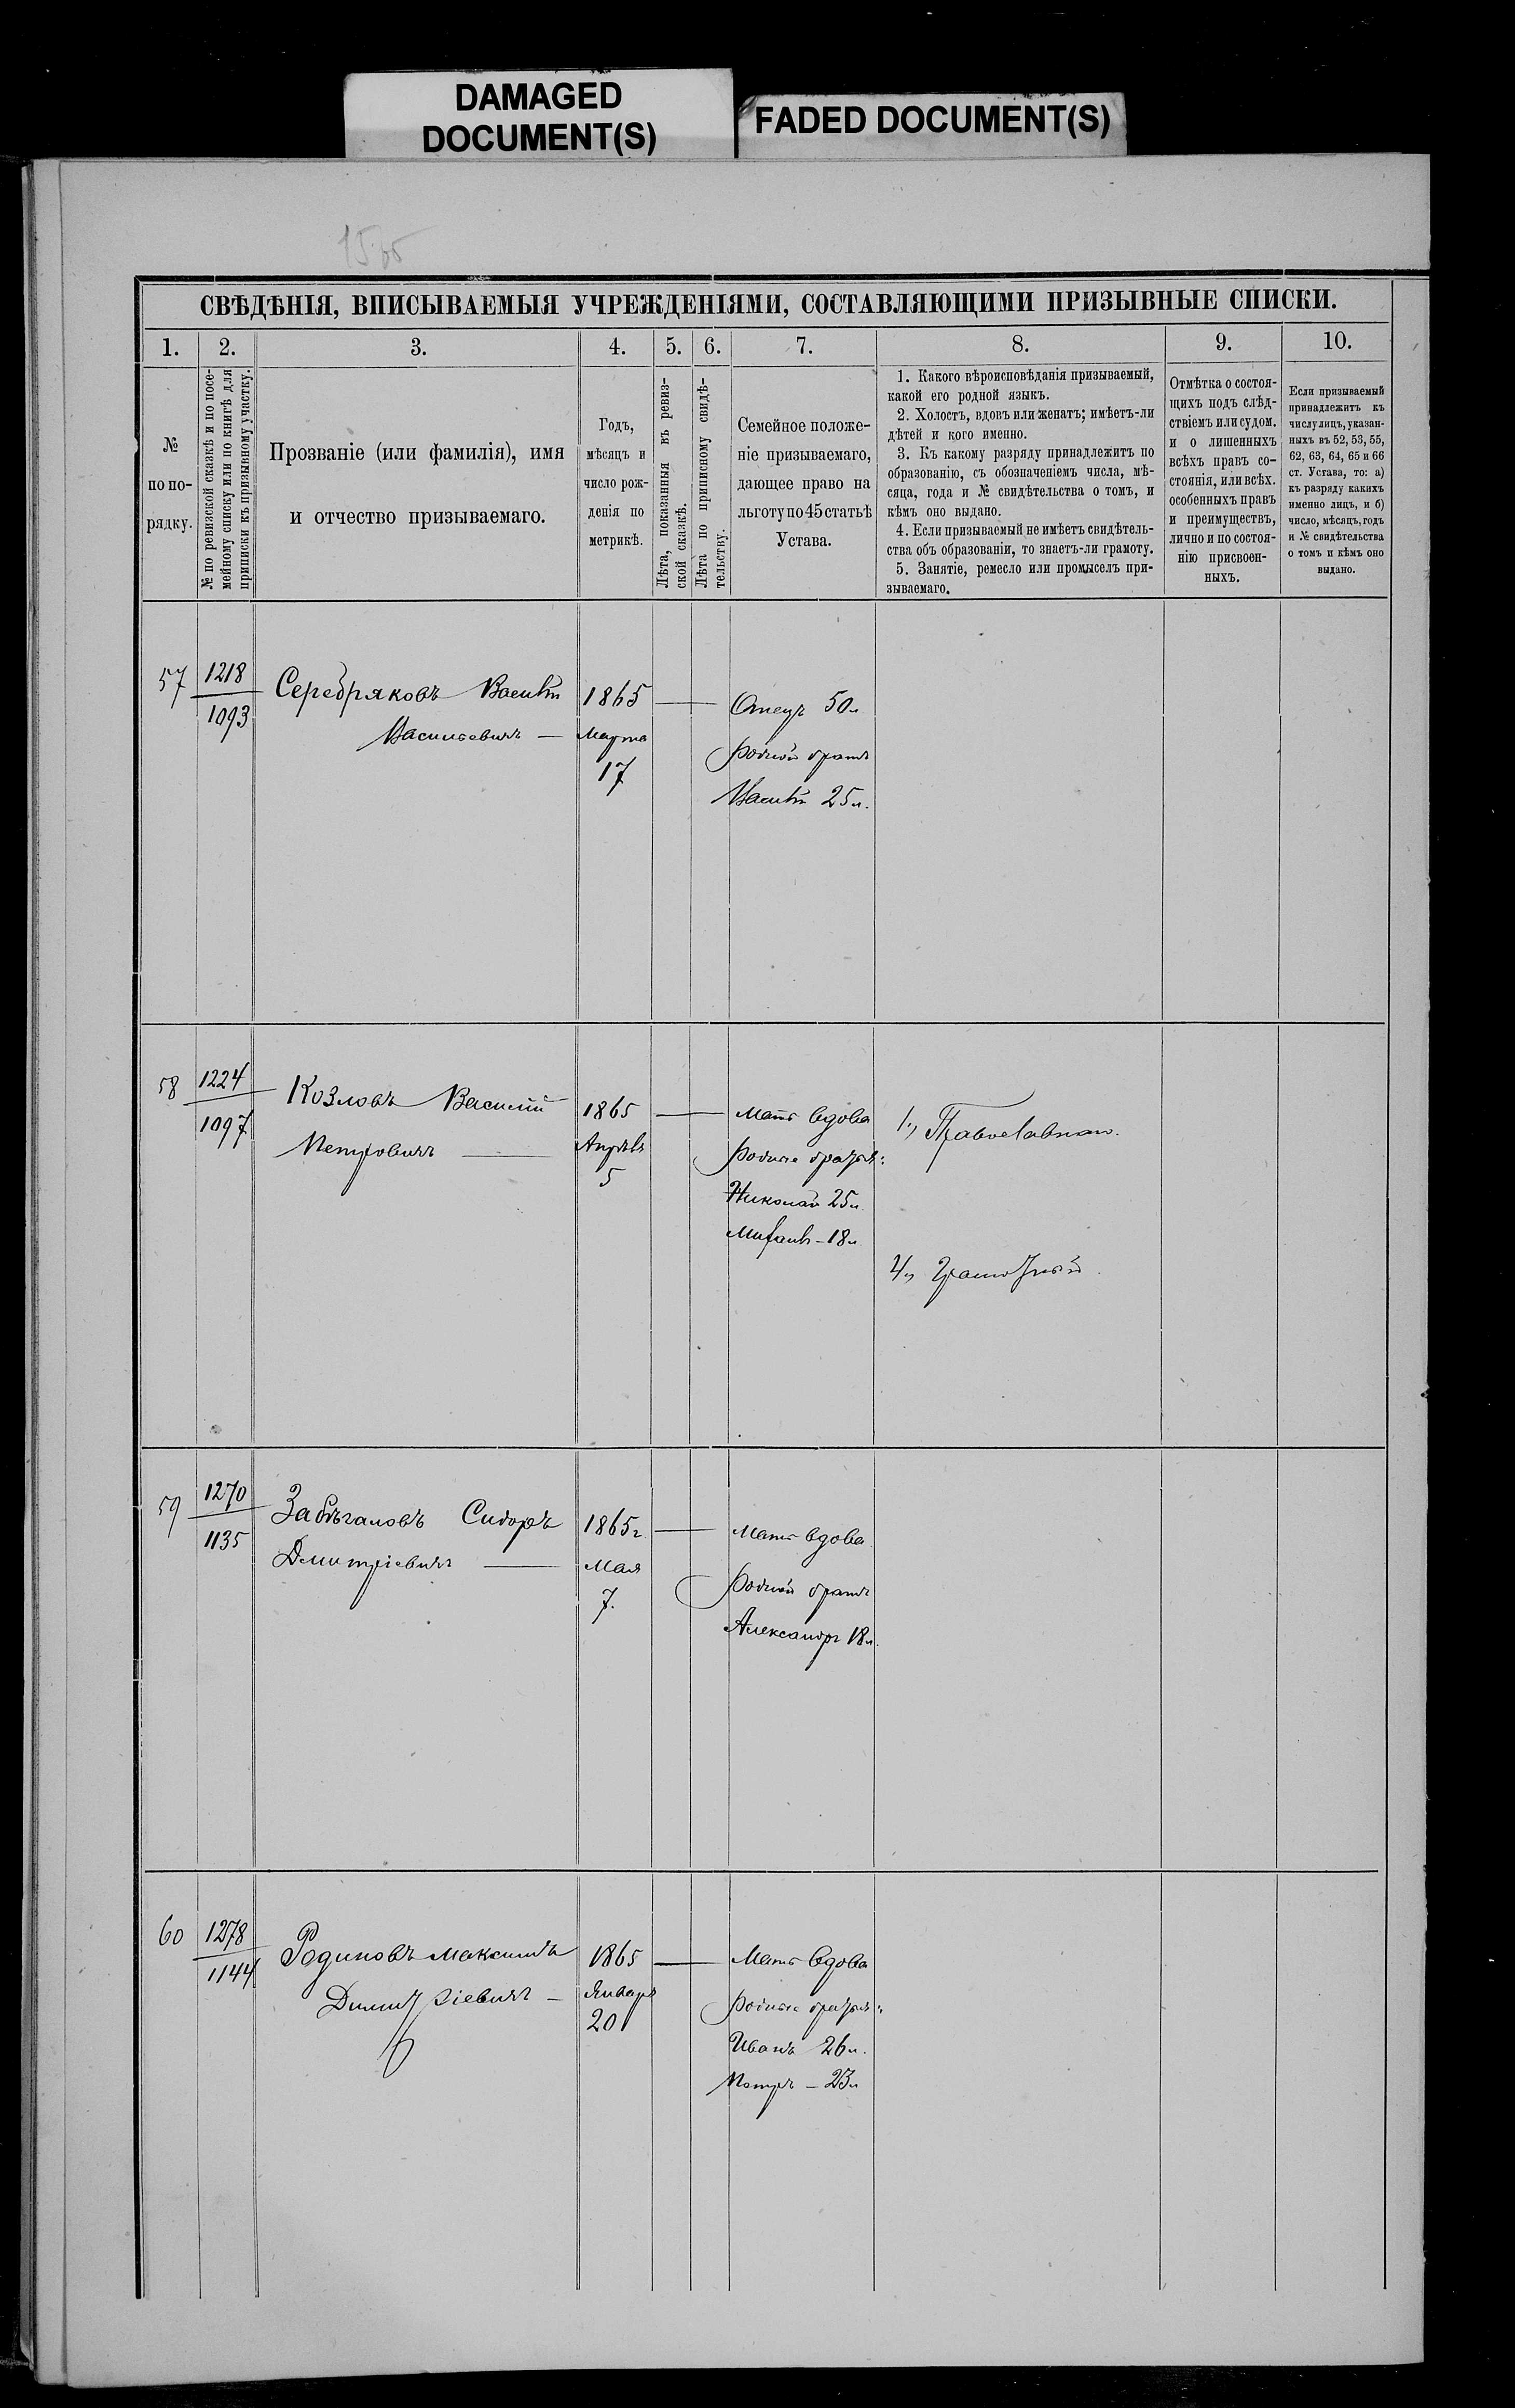 DAMAGED
DOCUMENT(S)
FADED DOCUMENT(S)
СВѢДѢНІЯ, ВПИСЫВАЕМЫЯ УЧРЕЖДЕНІЯМИ, СОСТАВЛЯЮЩИМИ ПРИЗЫВНЫЕ СПИСКИ.
1. 2. 3. 4. 5. 6. 7. 8. 9. 10.
№
по по-
рядку.
№ по ревизской сказкѣ и по посе-
мейному списку или по книгѣ для
приписки къ призывному участку.
Прозваніе (или фамилія), имя
и отчество призываемаго.
Годъ,
мѣсяцъ и
число рож-
денія по
метрикѣ.
Лѣта, показанныя въ ревиз-
ской сказкѣ.
Лѣта по приписному свидѣ-
тельству.
Семейное положе-
ніе призываемаго,
дающее право на
льготу по 45 статьѣ
Устава.
1. Какого вѣроисповѣданія призываемый,
какой его родной языкъ.
2. Холостъ, вдовъ или женатъ; имѣетъ-ли
дѣтей и кого именно.
3. Къ какому разряду принадлежитъ по
образованію, съ обозначеніемъ числа, мѣ-
сяца, года и № свидѣтельства о томъ, и
кѣмъ оно выдано.
4. Если призываемый не имѣетъ свидѣтель-
ства объ образованіи, то знаетъ-ли грамоту.
5. Занятіе, ремесло или промыселъ при-
зываемаго.
Отмѣтка о состоя-
щихъ подъ слѣд-
ствіемъ или судом.
и о лишенныхъ
всѣхъ правъ со-
стоянія, или всѣх.
особенныхъ правъ
и преимуществъ,
лично и по состоя-
нію присвоен-
ныхъ.
Если призываемый
принадлежитъ къ
числу лицъ, указан-
ныхъ въ 52, 53, 55,
62, 63, 64, 65 и 66
ст. Устава, то: а)
къ разряду какихъ
именно лицъ, и б)
число, мѣсяцъ, годъ
и № свидѣтельства
о томъ и кѣмъ оно
выдано.
57
1218
1093
Серебряковъ
Васильевичъ —
1865
Марта
17
Отецъ 50л
Родной братъ
25л.
58
1224
1097
Козловъ Василій
Петровичъ —
1865
Апрѣль
5
Мать вдова
Родные братья:
Николай 25л
Михаилъ - 18л
1.,
4.,
59
1270
1135
Сидоръ
Дмитріевичъ —
1865г.
Мая
7.
Мать вдова
Родной братъ
Александръ 18л.
60
1278
1144
Родиновъ Максимъ
Димитріевичъ —
1865
Январь
20
Мать вдова
Родные братья:
Иванъ 26л.
Петръ — 23л